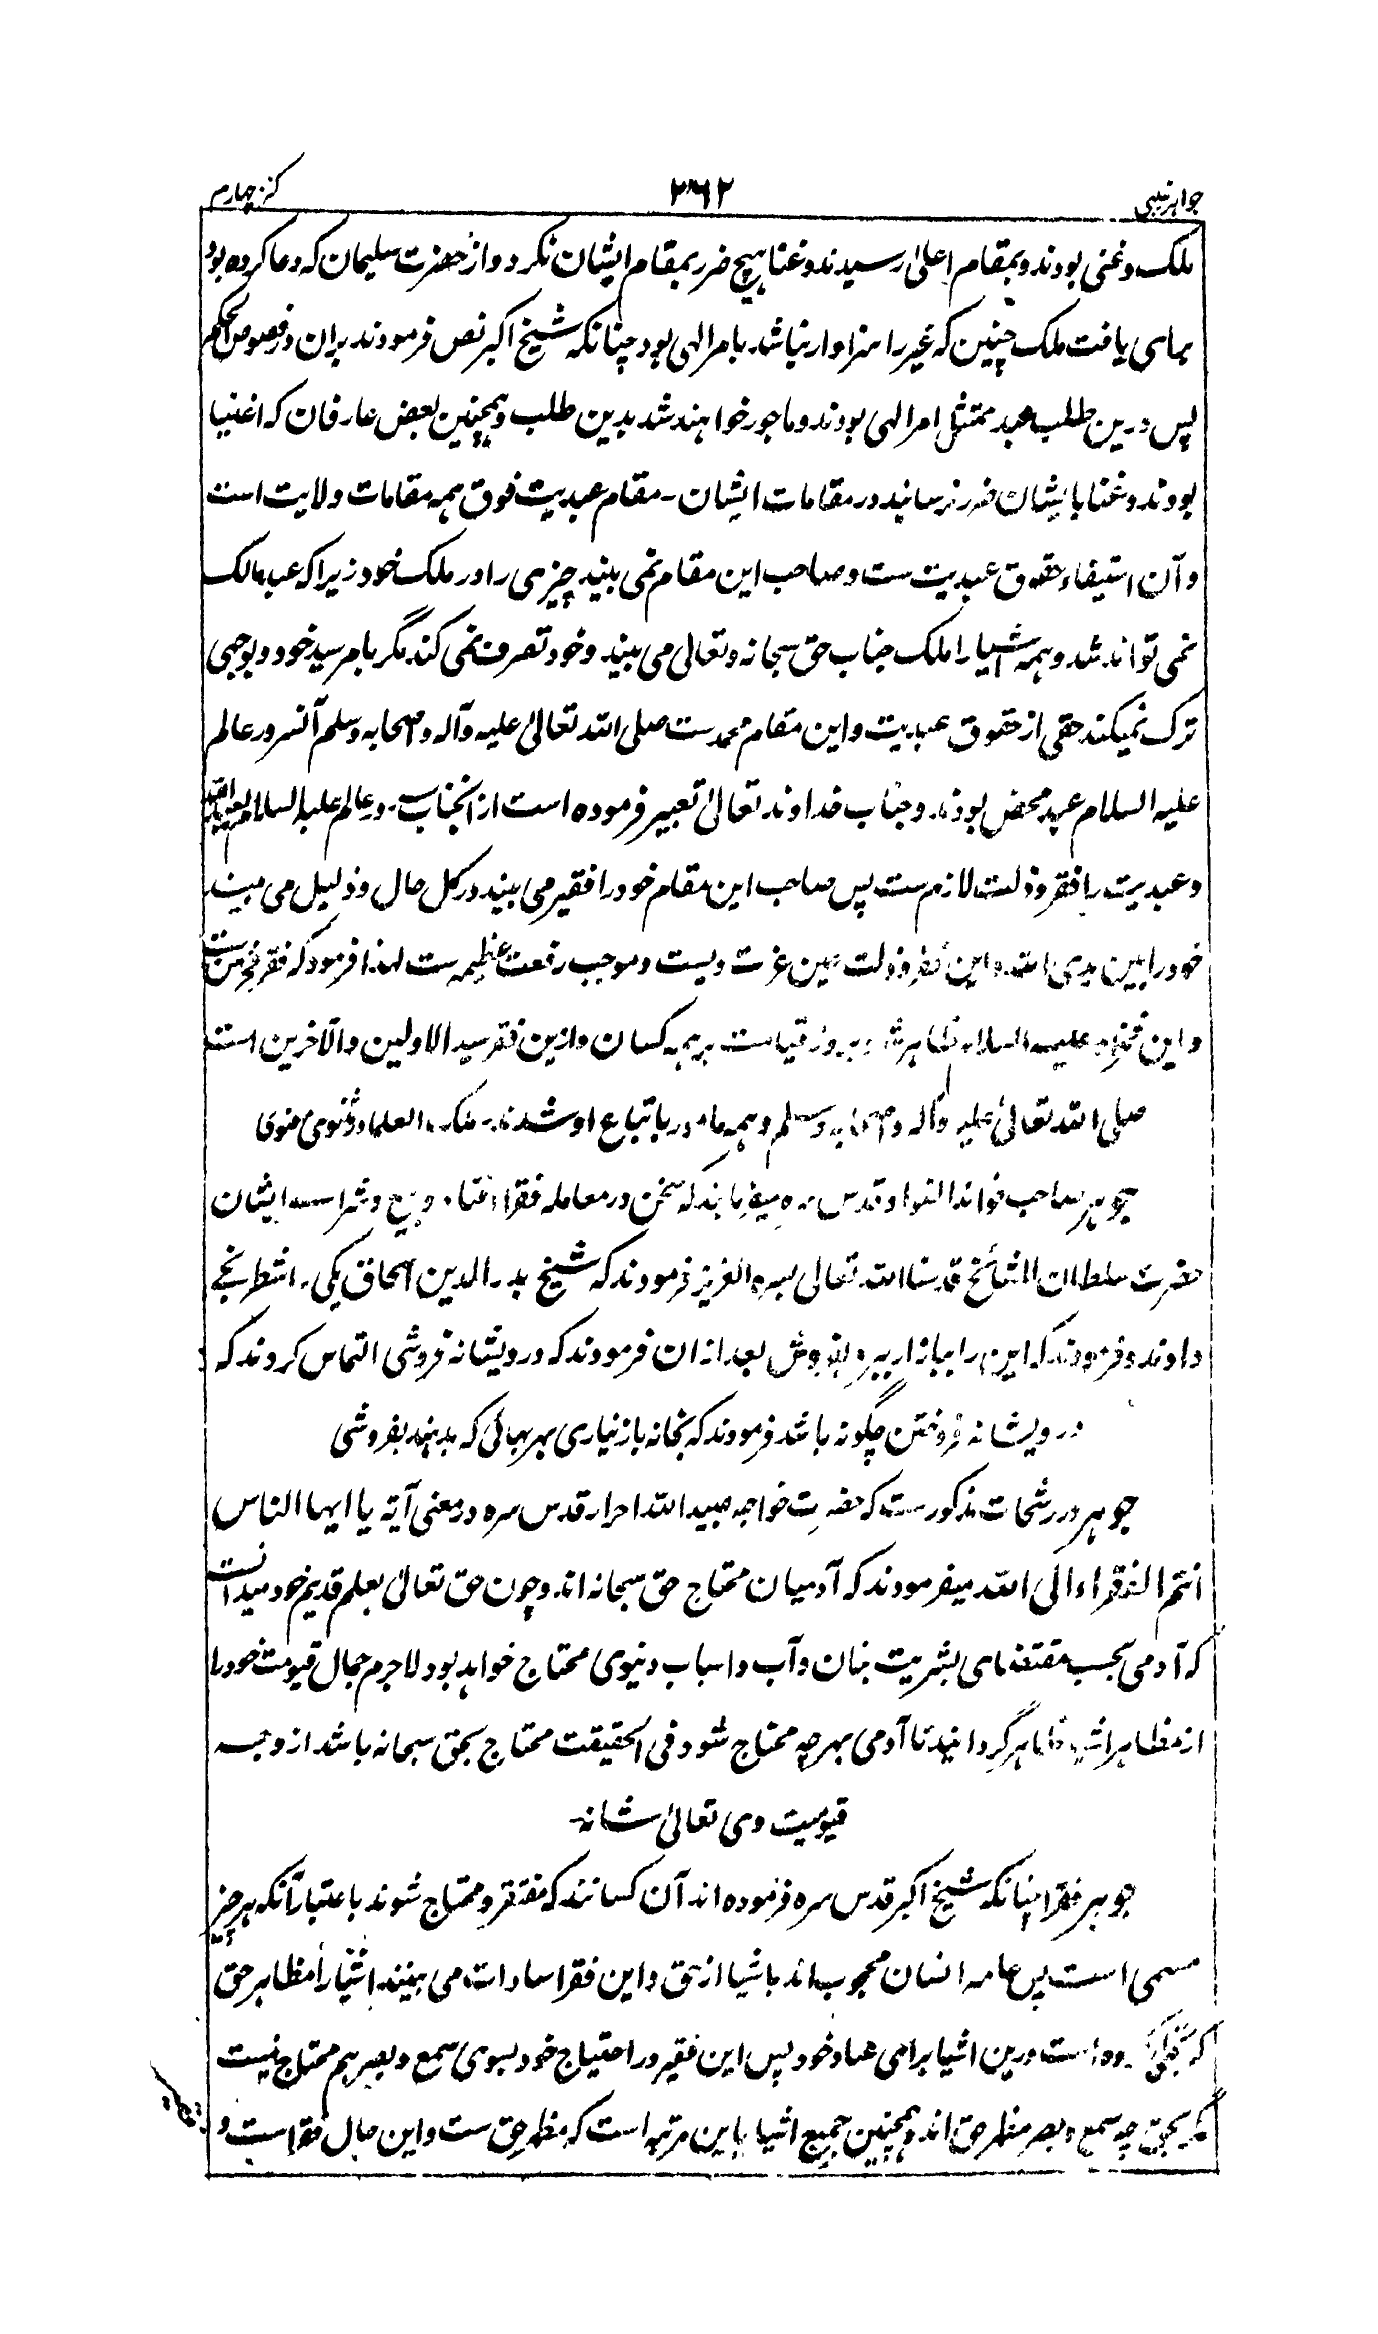 جواهر غیبی
۳۶۲
کنز چهارم
ملک و غنی بودند و بمقام اعلیٰ رسیدند و غنا هیچ ضرر بمقام ایشان نکرد و از حضرت سلیمان که دعا کرده بود
برای یافت ملک چنین که غیر را سزاوار نباشد بامر الهی بود چنانکه شیخ اکبر نص فرمودند بران در فصوص الحکم
پس درین طلب عبد ممتثل امر الهی بودند و ماجور خواهند شد بدین طلب و همچنین بعض عارفان که اغنیا
بودند و غنا بایشان ضرر نرسانید در مقامات ایشان - مقام عبدیت فوق همه مقامات ولایت است
و آن استیفاء حقوق عبدیت ست و صاحب این مقام نمی بیند چیزی را در ملک خود زیرا که عبد مالک
نمی تواند شد و همه اشیا را ملک جناب حق سبحانه و تعالی می بیند و خود تصرف نمی کند مگر بامر سید خود و بوجهی
ترک نمیکند حقی از حقوق عبدیت و این مقام محمدست صلی الله تعالیٰ علیه و آله و اصحابه وسلم آنسرور عالم
علیه السلام عبد محض بودند و جناب خداوند تعالیٰ تعبیر فرموده است از آنجناب سرور عالم علیه السلام بعبد الله
و عبدیت را فقر و ذلت لازم ست پس صاحب این مقام خود را فقیر می بیند در کل حال و ذلیل می بیند
خود را بین یدی الله و این فقر و ذلت عین عزت ویست و موجب رفعت عظیمه ست لهذا فرمود که فقر فخر من ست
و این فخر او علیه السلام ظاهر شود بروز قیامت بر همه کسان و ازین فقر سید الاولین و الآخرین است
صلی الله تعالیٰ علیه و آله و اصحابه وسلم و همه مامور باتباع او شدند - ملک العلماء و مثنوی معنوی
جوهر صاحب فوائد الفواد قدس سره میفرمایند که سخن در معامله فقرا افتاد و بیع و شراے ایشان
حضرت سلطان المشائخ قدسنا الله تعالی بسره العزیز فرمودند که شیخ بدر الدین اسحاق یکی را شطرنجے
دادند و فرمودند که این را ببازار ببر و بفروش بعد ازان فرمودند که درویشانه فروشی التماس کردند که
درویشانه فروختن چگونه باشد فرمودند که بخانه باز نیاری بهر بهائی که بدهند بفروشی
جوهر در رشحات مذکورست که حضرت خواجه عبید الله احرار قدس سره در معنی آیة یا ایها الناس
انتم الفقراء الی الله میفرمودند که آدمیان محتاج حق سبحانه اند و چون حق تعالیٰ بعلم قدیم خود میدانست
که آدمی بحسب مقتضای بشریت بنان و آب و اسباب دنیوی محتاج خواهد بود لاجرم جمال قیومیت خود را
از مظاهر اشیا ظاهر گردانید تا آدمی بهرچه محتاج شود فی الحقیقت محتاج بحق سبحانه باشد از وجه
قیومیت وی تعالیٰ شانه-
جوهر فقرا چنانکه شیخ اکبر قدس سره فرموده اند آن کسانند که مفتقر و محتاج شوند باعتبار آنکه هر چیز
مسمی است پس عامه انسان محجوب اند باشیا از حق و این فقرا سادات می بینند اشیا را مظاهر حق
که تجلی کرده است درین اشیا برای عباد خود پس این فقیر در احتیاج خود بسوی سمع و بصر هم محتاج نیست
مگر بحق چه سمع و بصر مظهر حق اند و همچنین جمیع اشیا باین مرتبه است که مظهر حق ست و این حال فقراست و